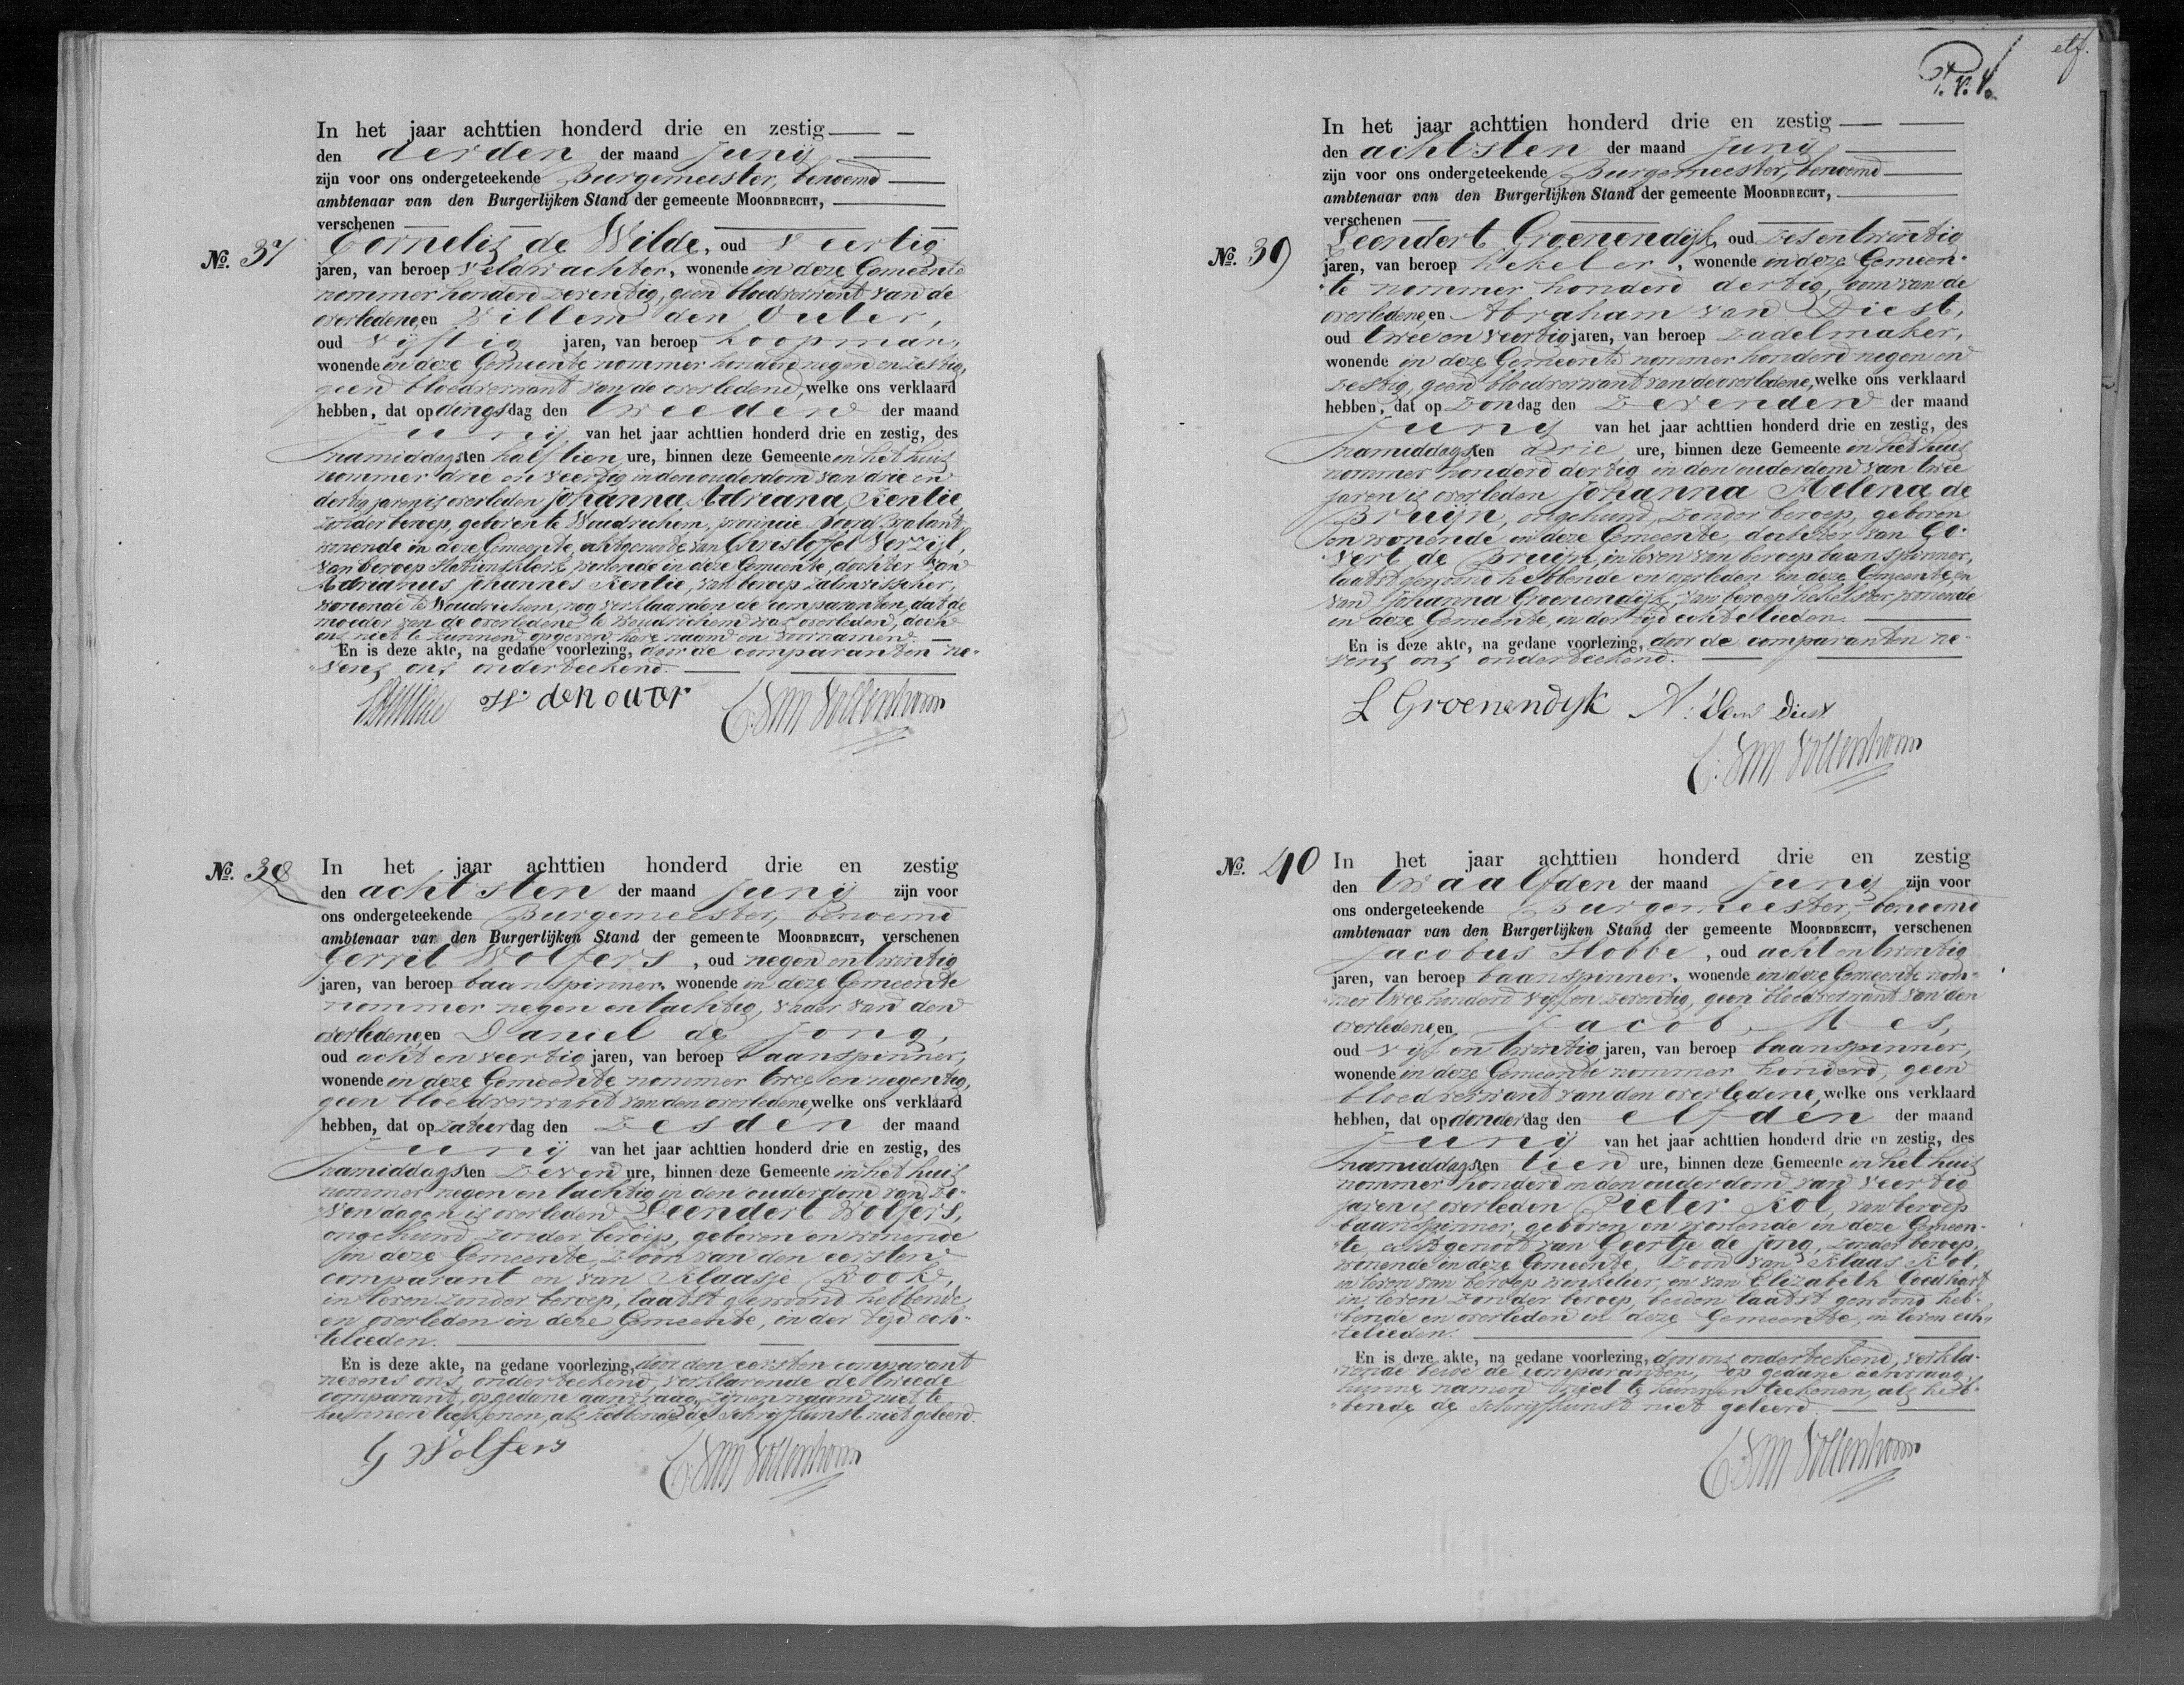 elf.
In het jaar achttien honderd drie en zestig
den derden der maand Junij
zijn voor ons ondergeteekende Burgemeester, benoemd
ambtenaar van den Burgerlijken Stand der gemeente MOORDRECHT,
verschenen
No. 37 Cornelis de Wilde, oud veertig
jaren, van beroep veldwachter, wonende in deze Gemeente
nommer honderd zeventig, geen bloedverwant van de
overledene, en Willem den Outer,
oud vijftig jaren, van beroep koopman,
wonende in deze Gemeente nommer honderd negen en zestig,
geen bloedverwant van de overledene, welke ons verklaard
hebben, dat op dingsdag den tweeden der maand
Junij van het jaar achttien honderd drie en zestig, des
namiddags ten half tien ure, binnen deze Gemeente in het huis
nommer drie en veertig in den ouderdom van drie en
dertig jaren is overleden Johanna Adriana Kentie,
zonder beroep, geboren te Woudrichem, provincie Noord Braband,
wonende in deze Gemeente, echtgenoote van Christoffel Verzijl,
van beroep Stationsklerk, wonende in deze Gemeente, dochter van
Adrianus Johannes Kentie, van beroep zalmvisscher,
wonende te Woudrichem, nog verklaarden de comparanten, dat de
moeder van de overledene te Woudrichem was overleden, doch
ons niet te kunnen opgeven hare naam en voornamen.
En is deze akte, na gedane voorlezing, door de comparanten ne-
vens ons onderteekend.
W den outer C. van Vollenhoven
No. 38 In het jaar achttien honderd drie en zestig
den achtsten der maand Junij zijn voor
ons ondergeteekende Burgemeester, benoemd
ambtenaar van den Burgerlijken Stand der gemeente MOORDRECHT, verschenen
Gerrit Wolfers, oud negen en twintig
jaren, van beroep baanspinner, wonende in deze Gemeente
nommer negen en tachtig, vader van den
overledene, en Daniel de Jong,
oud acht en veertig jaren, van beroep baanspinner,
wonende in deze Gemeente nommer twee en negentig,
geen bloedverwant van den overledene, welke ons verklaard
hebben, dat op zaturdag den zesden der maand
Junij van het jaar achttien honderd drie en zestig, des
namiddags ten zeven ure, binnen deze Gemeente in het huis
nommer negen en tachtig in den ouderdom van ze-
ven dagen is overleden Leendert Wolfers,
ongehuwd, zonder beroep, geboren en wonende
in deze Gemeente, zoon van den eersten
comparant en van Klaasje Kooke,
in leven zonder beroep, laatst gewoond hebbende
en overleden in deze Gemeente, in der tijd ech-
telieden.
En is deze akte, na gedane voorlezing, door den eersten comparant
nevens ons onderteekend, verklarende de tweede
comparant, op gedane aanvraag, zijnen naam niet te
kunnen teekenen, als hebbende de schrijfkunst niet geleerd.
G Wolfers C. van Vollenhoven
In het jaar achttien honderd drie en zestig
den achtsten der maand Junij
zijn voor ons ondergeteekende Burgemeester, benoemd
ambtenaar van den Burgerlijken Stand der gemeente MOORDRECHT,
verschenen
No. 39 Leendert Groenendijk, oud zes en twintig
jaren, van beroep hekelaar, wonende in deze Gemeen-
te nommer honderd dertig, oom van de
overledene, en Abraham van Diest,
oud twee en veertig jaren, van beroep zadelmaker,
wonende in deze Gemeente nommer honderd negen en
zestig, geen bloedverwant van de overledene, welke ons verklaard
hebben, dat op zondag den zevenden der maand
Junij van het jaar achttien honderd drie en zestig, des
namiddags ten drie ure, binnen deze Gemeente in het huis
nommer honderd dertig in den ouderdom van twee
jaren is overleden Johanna Helena de
Bruijn, ongehuwd, zonder beroep, geboren
en wonende in deze Gemeente, dochter van Go-
vert de Bruijn, in leven van beroep baanspinner,
laatst gewoond hebbende en overleden in deze Gemeente, en
van Johanna Groenendijk, van beroep hekelster, wonende
in deze Gemeente, in der tijd echtelieden.
En is deze akte, na gedane voorlezing, door de comparanten ne-
vens ons onderteekend.
L Groenendyk A. van Diest
C. van Vollenhoven
No. 40 In het jaar achttien honderd drie en zestig
den twaalfden der maand Junij zijn voor
ons ondergeteekende Burgemeester, benoemd
ambtenaar van den Burgerlijken Stand der gemeente MOORDRECHT, verschenen
Jacobus Slobbe, oud acht en twintig
jaren, van beroep baanspinner, wonende in deze Gemeente nom-
mer twee honderd vijf en zeventig, geen bloedverwant van den
overledene, en Jacob Mes,
oud vijf en twintig jaren, van beroep baanspinner,
wonende in deze Gemeente nommer honderd, geen
bloedverwant van den overledene, welke ons verklaard
hebben, dat op donderdag den elfden der maand
Junij van het jaar achttien honderd drie en zestig, des
namiddags ten tien ure, binnen deze Gemeente in het huis
nommer honderd in den ouderdom van veertig
jaren is overleden Pieter Kol, van beroep
baanspinner, geboren en wonende in deze Gemeen-
te, echtgenoot van Geertje de Jong, zonder beroep,
wonende in deze Gemeente, zoon van Klaas Kol,
in leven van beroep winkelier, en van Elizabeth Goedhart
in leven zonder beroep, beiden laatst gewoond heb-
bende en overleden in deze Gemeente, in leven ech-
telieden.
En is deze akte, na gedane voorlezing, door ons onderteekend, verkla-
rende beide de comparanten, op gedane aanvraag,
hunne namen niet te kunnen teekenen, als heb-
bende de schrijfkunst niet geleerd.
C. van Vollenhoven